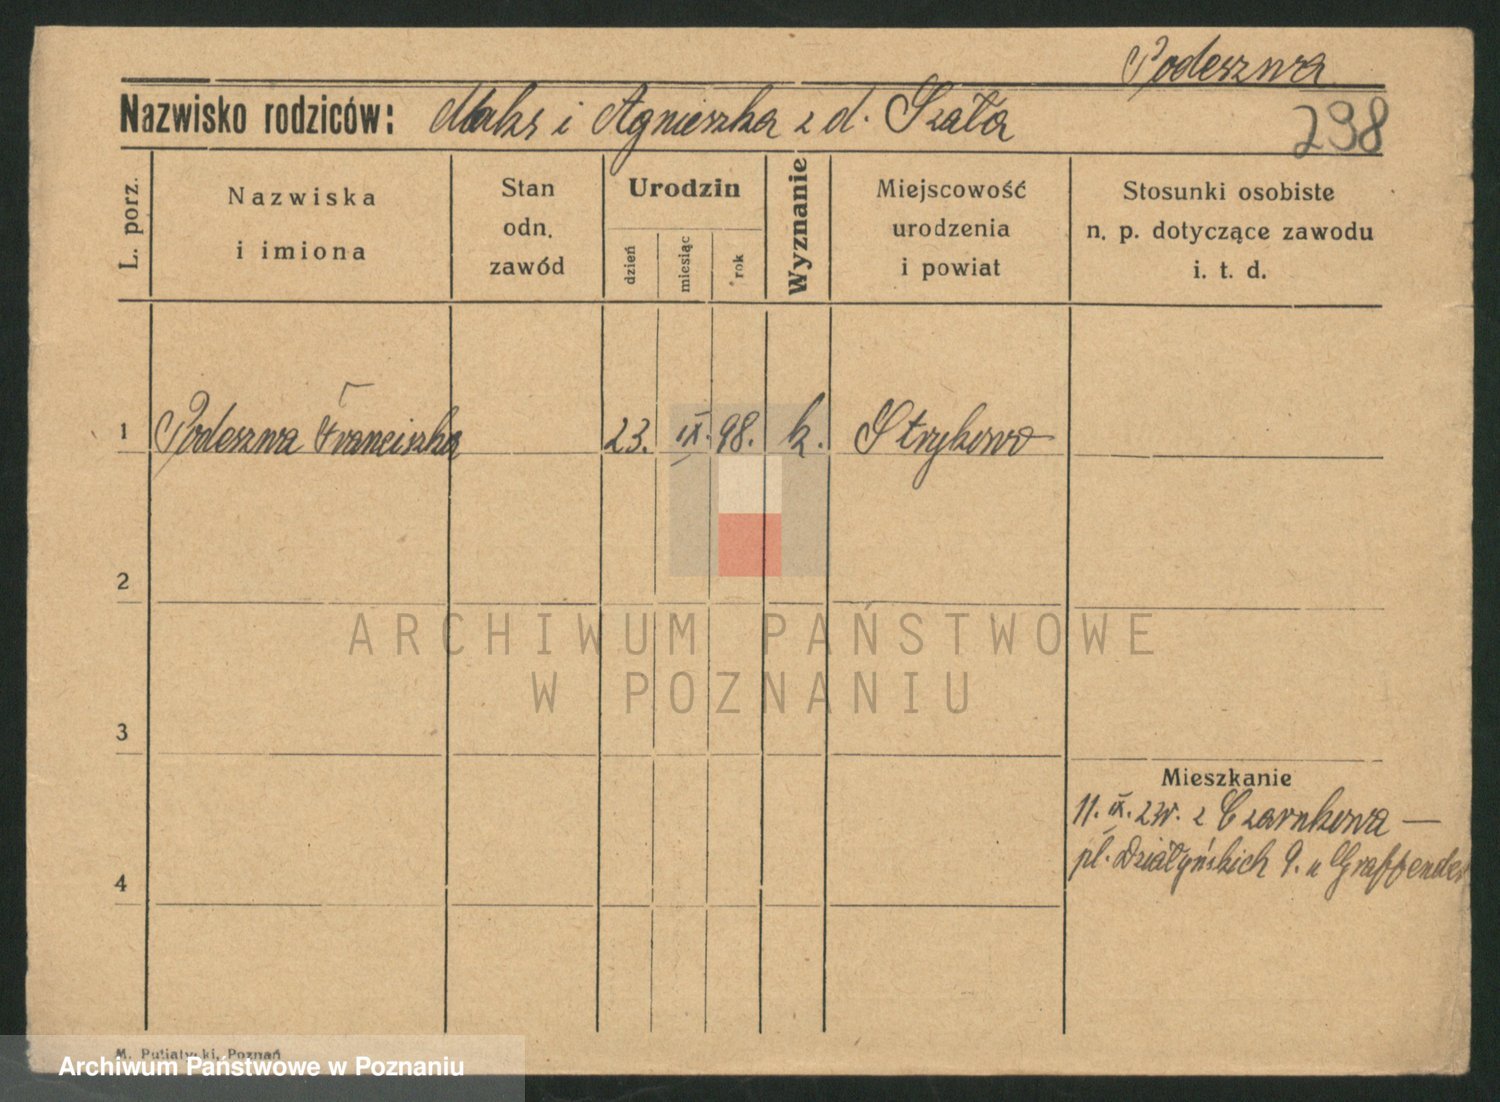 Podeszwa
Nazwisko rodziców: Maks i Agnieszka z d. Szała
298
L. porz.
Nazwiska
i imiona
Stan
odn.
zawód
Urodzin
dzień
miesiąc
rok
Wyznanie
Miejscowość
urodzenia
i powiat
Stosunki osobiste
n. p. dotyczące zawodu
i. t. d.
1 Podeszwa Franciszka 23. IX. 98. k. Strykowo
2
3
4
ARCHIWUM PAŃSTWOWE
W POZNANIU
Mieszkanie
11. IX. z Czarnkowa —
pl. Działyńskich 9. u
M. Putiatycki, Poznań
Archiwum Państwowe w Poznaniu